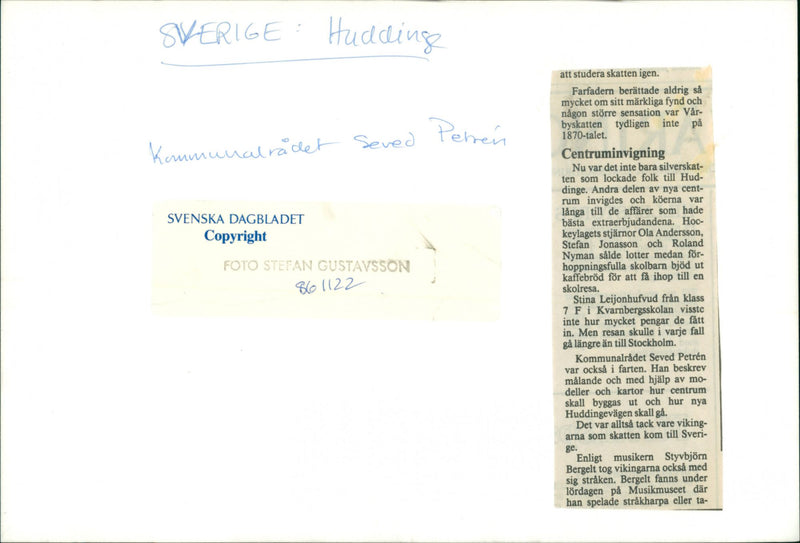 SVERIGE: Huddinge
Kommunalrådet Seved Petrén
SVENSKA DAGBLADET
Copyright
FOTO STEFAN GUSTAVSSON
861122
att studera skatten igen.
Farfadern berättade aldrig så
mycket om sitt märkliga fynd och
någon större sensation var Vår-
byskatten tydligen inte på
1870-talet.
Centruminvigning
Nu var det inte bara silverskat-
ten som lockade folk till Hud-
dinge. Andra delen av nya cent-
rum invigdes och köerna var
långa till de affärer som hade
bästa extraerbjudandena. Hoc-
keylagets stjärnor Ola Andersson,
Stefan Jonasson och Roland
Nyman sålde lotter medan för-
hoppningsfulla skolbarn bjöd ut
kaffebröd för att få ihop till en
skolresa.
Stina Leijonhufvud från klass
7 F i Kvarnbergsskolan visste
inte hur mycket pengar de fått
in. Men resan skulle i varje fall
gå längre än till Stockholm.
Kommunalrådet Seved Petrén
var också i farten. Han beskrev
målande och med hjälp av mo-
deller och kartor hur centrum
skall byggas ut och hur nya
Huddingevägen skall gå.
Det var alltså tack vare viking-
arna som skatten kom till Sveri-
ge.
Enligt musikern Styvbjörn
Bergelt tog vikingarna också med
sig stråken. Bergelt fanns under
lördagen på Musikmuseet där
han spelade stråkharpa eller ta-